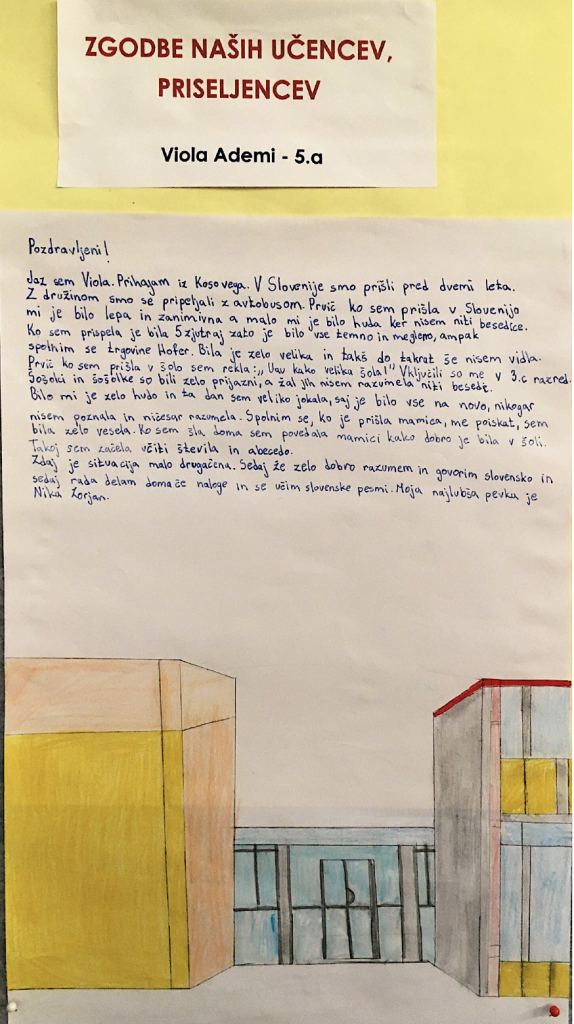 ZGODBE NAŠIH UČENCEV,
PRISELJENCEV
Viola Ademi - 5.a
Pozdravljeni!
Jaz sem Viola. Prihajam iz Kosovega. V Slovenije smo prišli pred dvemi leta.
Z družinom smo se pripeljali z avtobusom. Prvič ko sem prišla v Slovenijo
mi je bilo lepa in zanimivna a malo mi je bilo huda ker nisem niti besedice.
Ko sem prispela je bila 5 zjutraj zato je bilo vse temno in megleno, ampak
spolnim se trgovine Hofer. Bila je zelo velika in takš do takrat še nisem vidla.
Prvič ko sem prišla v šolo sem rekla: „Uau kako velika šola!" Vključili so me v 3.c razred.
Sošolci in sošolke so bili zelo prijazni, a žal jih nisem razumela niti besede.
Bilo mi je zelo hudo in ta dan sem veliko jokala, saj je bilo vse na novo, nikogar
nisem poznala in ničesar razumela. Spolnim se, ko je prišla mamica, me poiskat, sem
bila zelo vesela. Ko sem šla doma sem povedala mamici kako dobro je bila v šoli.
Takoj sem začela včiti števila in abecedo.
Zdaj je situacija malo drugačena. Sedaj že zelo dobro razumem in govorim slovensko in
sedaj rada delam domače naloge in se učim slovenske pesmi. Moja najlubša pevka je
Nika Zorjan.